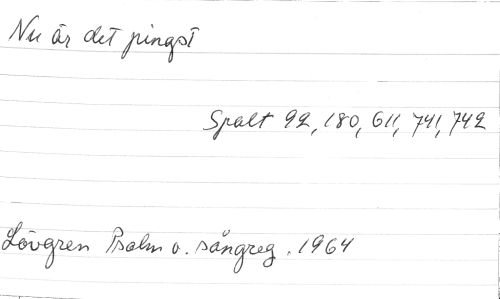 Nu är det pingst
Spalt 92, 180, 611, 741, 742
Lövgren Psalm o. sångreg. 1964